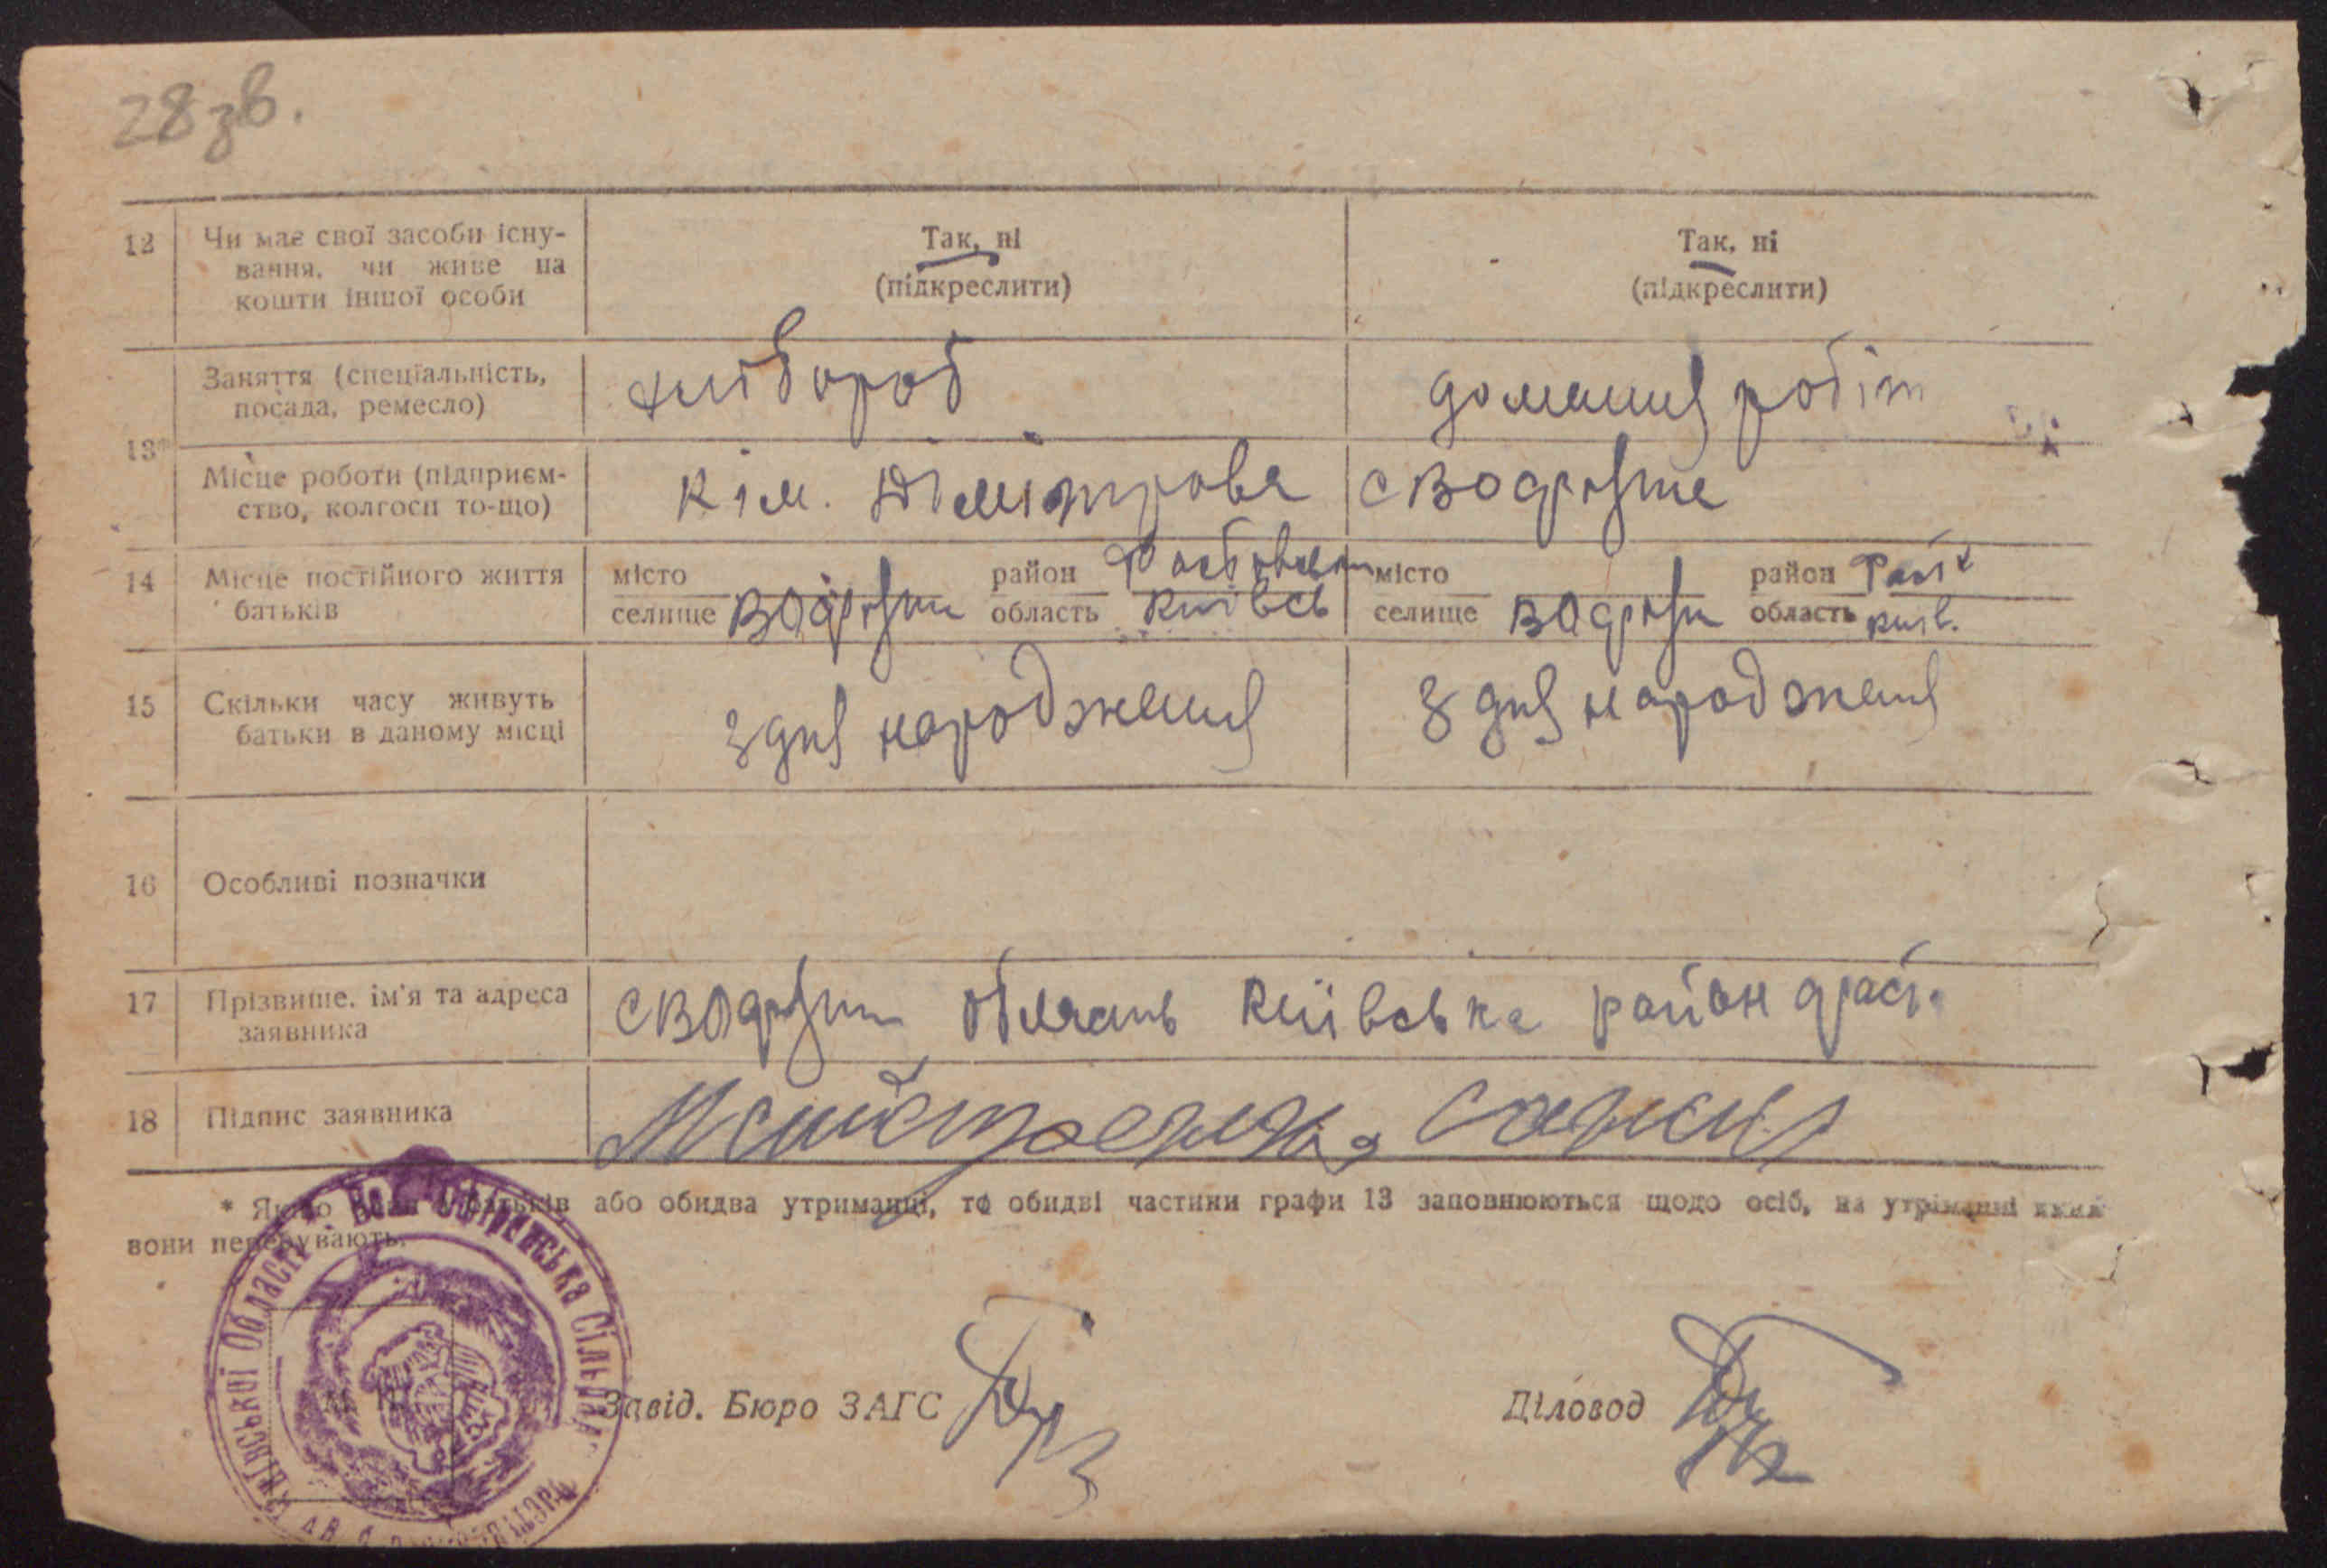 28 зв.
12 Чи має свої засоби існу-
вання, чи живе на
кошти іншої особи
Так, ні
(підкреслити)
Так, ні
(підкреслити)
13*
Заняття (спеціальність,
посада, ремесло)
хлібороб
домашня робіт
Місце роботи (підприєм-
ство, колгосп то-що)
К ім. Дімітрова
с
14 Місце постійного життя
батьків
місто
селище
район
область Київсь
місто
селище
район
область київ.
15 Скільки часу живуть
батьки в даному місці
з дня народження
з дня народження
16 Особливі позначки
17 Прізвище, ім'я та адреса
заявника
с область Київська район
18 Підпис заявника
* Якщо батьків або обидва утриманці, то обидві частини графи 13 заповнюються щодо осіб, на утриманні яких
вони перебувають.
Київської Області Сільрада
Завід. Бюро ЗАГС
Діловод